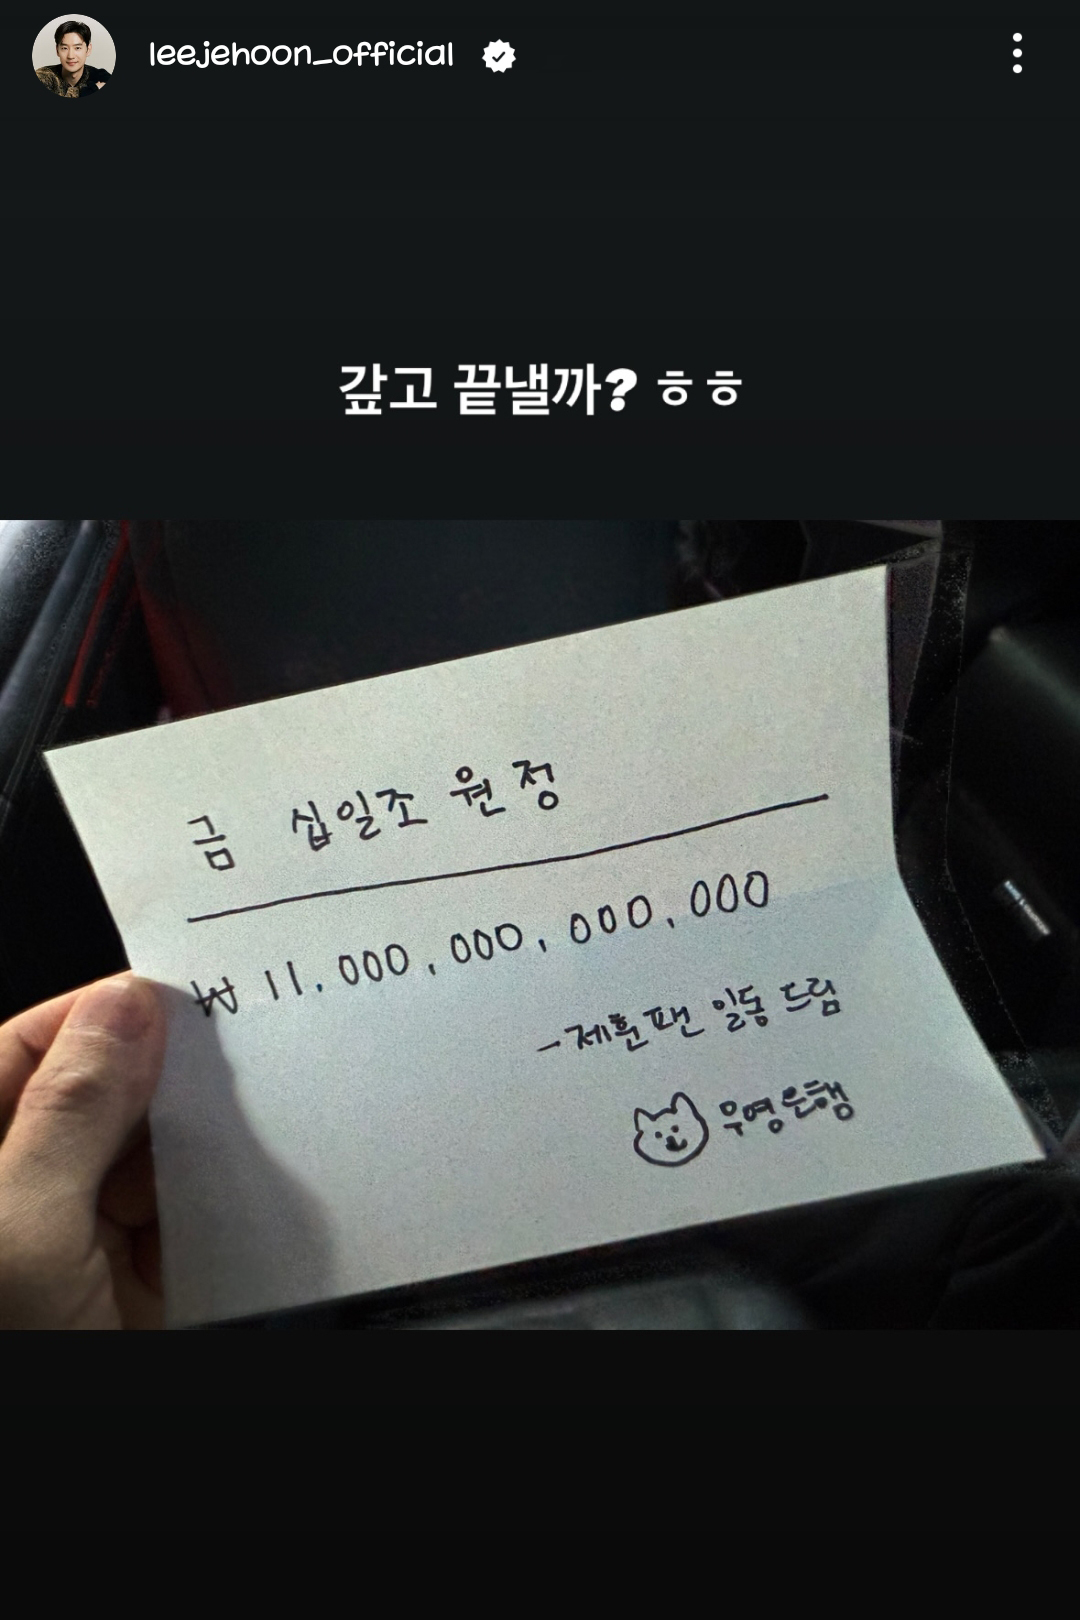 leejehoon_official
갚고 끝낼까? ㅎㅎ
금 십일조 원정
₩ 11,000,000,000,000
-제훈팬 일동 드림
우영은행